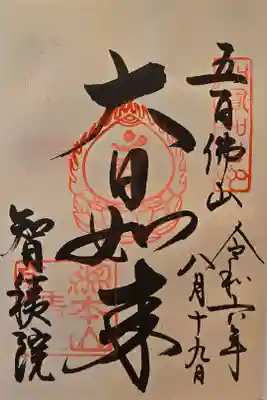 五百佛山
令和六年
八月十九日
大日如来
智積院
總本山